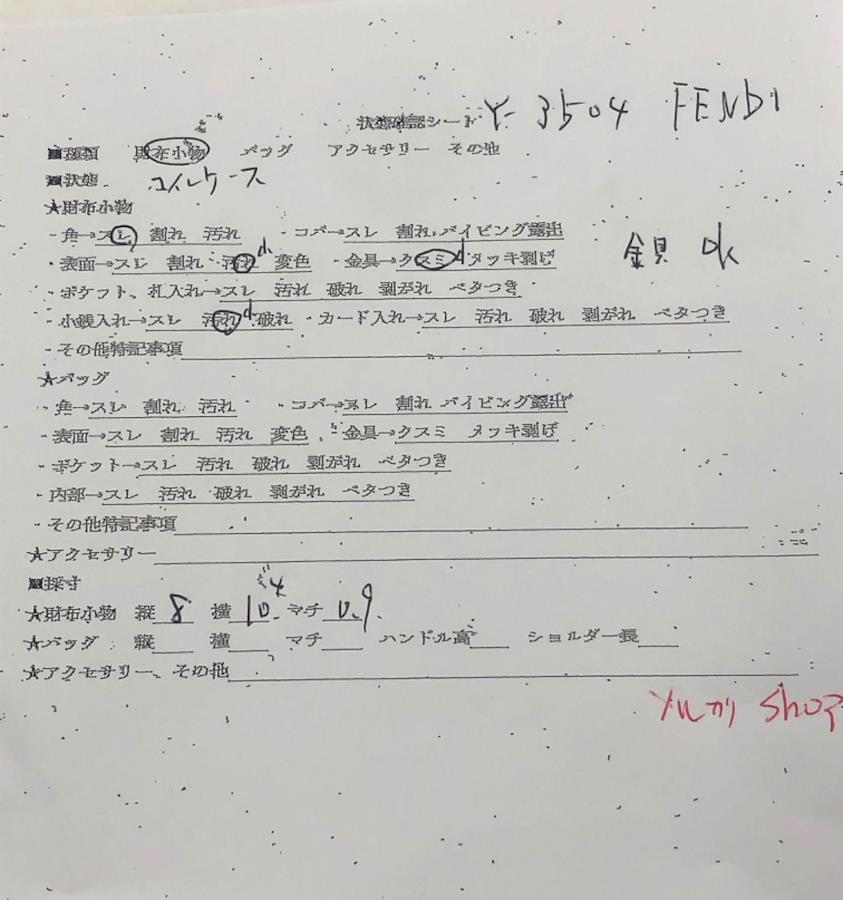 状態確認シート Y-3504 FENDI
■種類 財布小物 バッグ アクセサリー その他
■状態 コインケース
★財布小物
・角→スレ 割れ 汚れ ・コバ→スレ 割れ パイピング露出
・表面→スレ 割れ 汚れ 変色 ・金具→クスミ メッキ剥げ 金具 ok
・ポケット、札入れ→スレ 汚れ 破れ 剥がれ ベタつき
・小銭入れ→スレ 汚れ 破れ ・カード入れ→スレ 汚れ 破れ 剥がれ ベタつき
・その他特記事項
★バッグ
・角→スレ 割れ 汚れ ・コバ→スレ 割れ パイピング露出
・表面→スレ 割れ 汚れ 変色 ・金具→クスミ メッキ剥げ
・ポケット→スレ 汚れ 破れ 剥がれ ベタつき
・内部→スレ 汚れ 破れ 剥がれ ベタつき
・その他特記事項
★アクセサリー
■採寸
★財布小物 縦 8 横 10.4 マチ 0.9
★バッグ 縦 横 マチ ハンドル高 ショルダー長
★アクセサリー、その他
shop